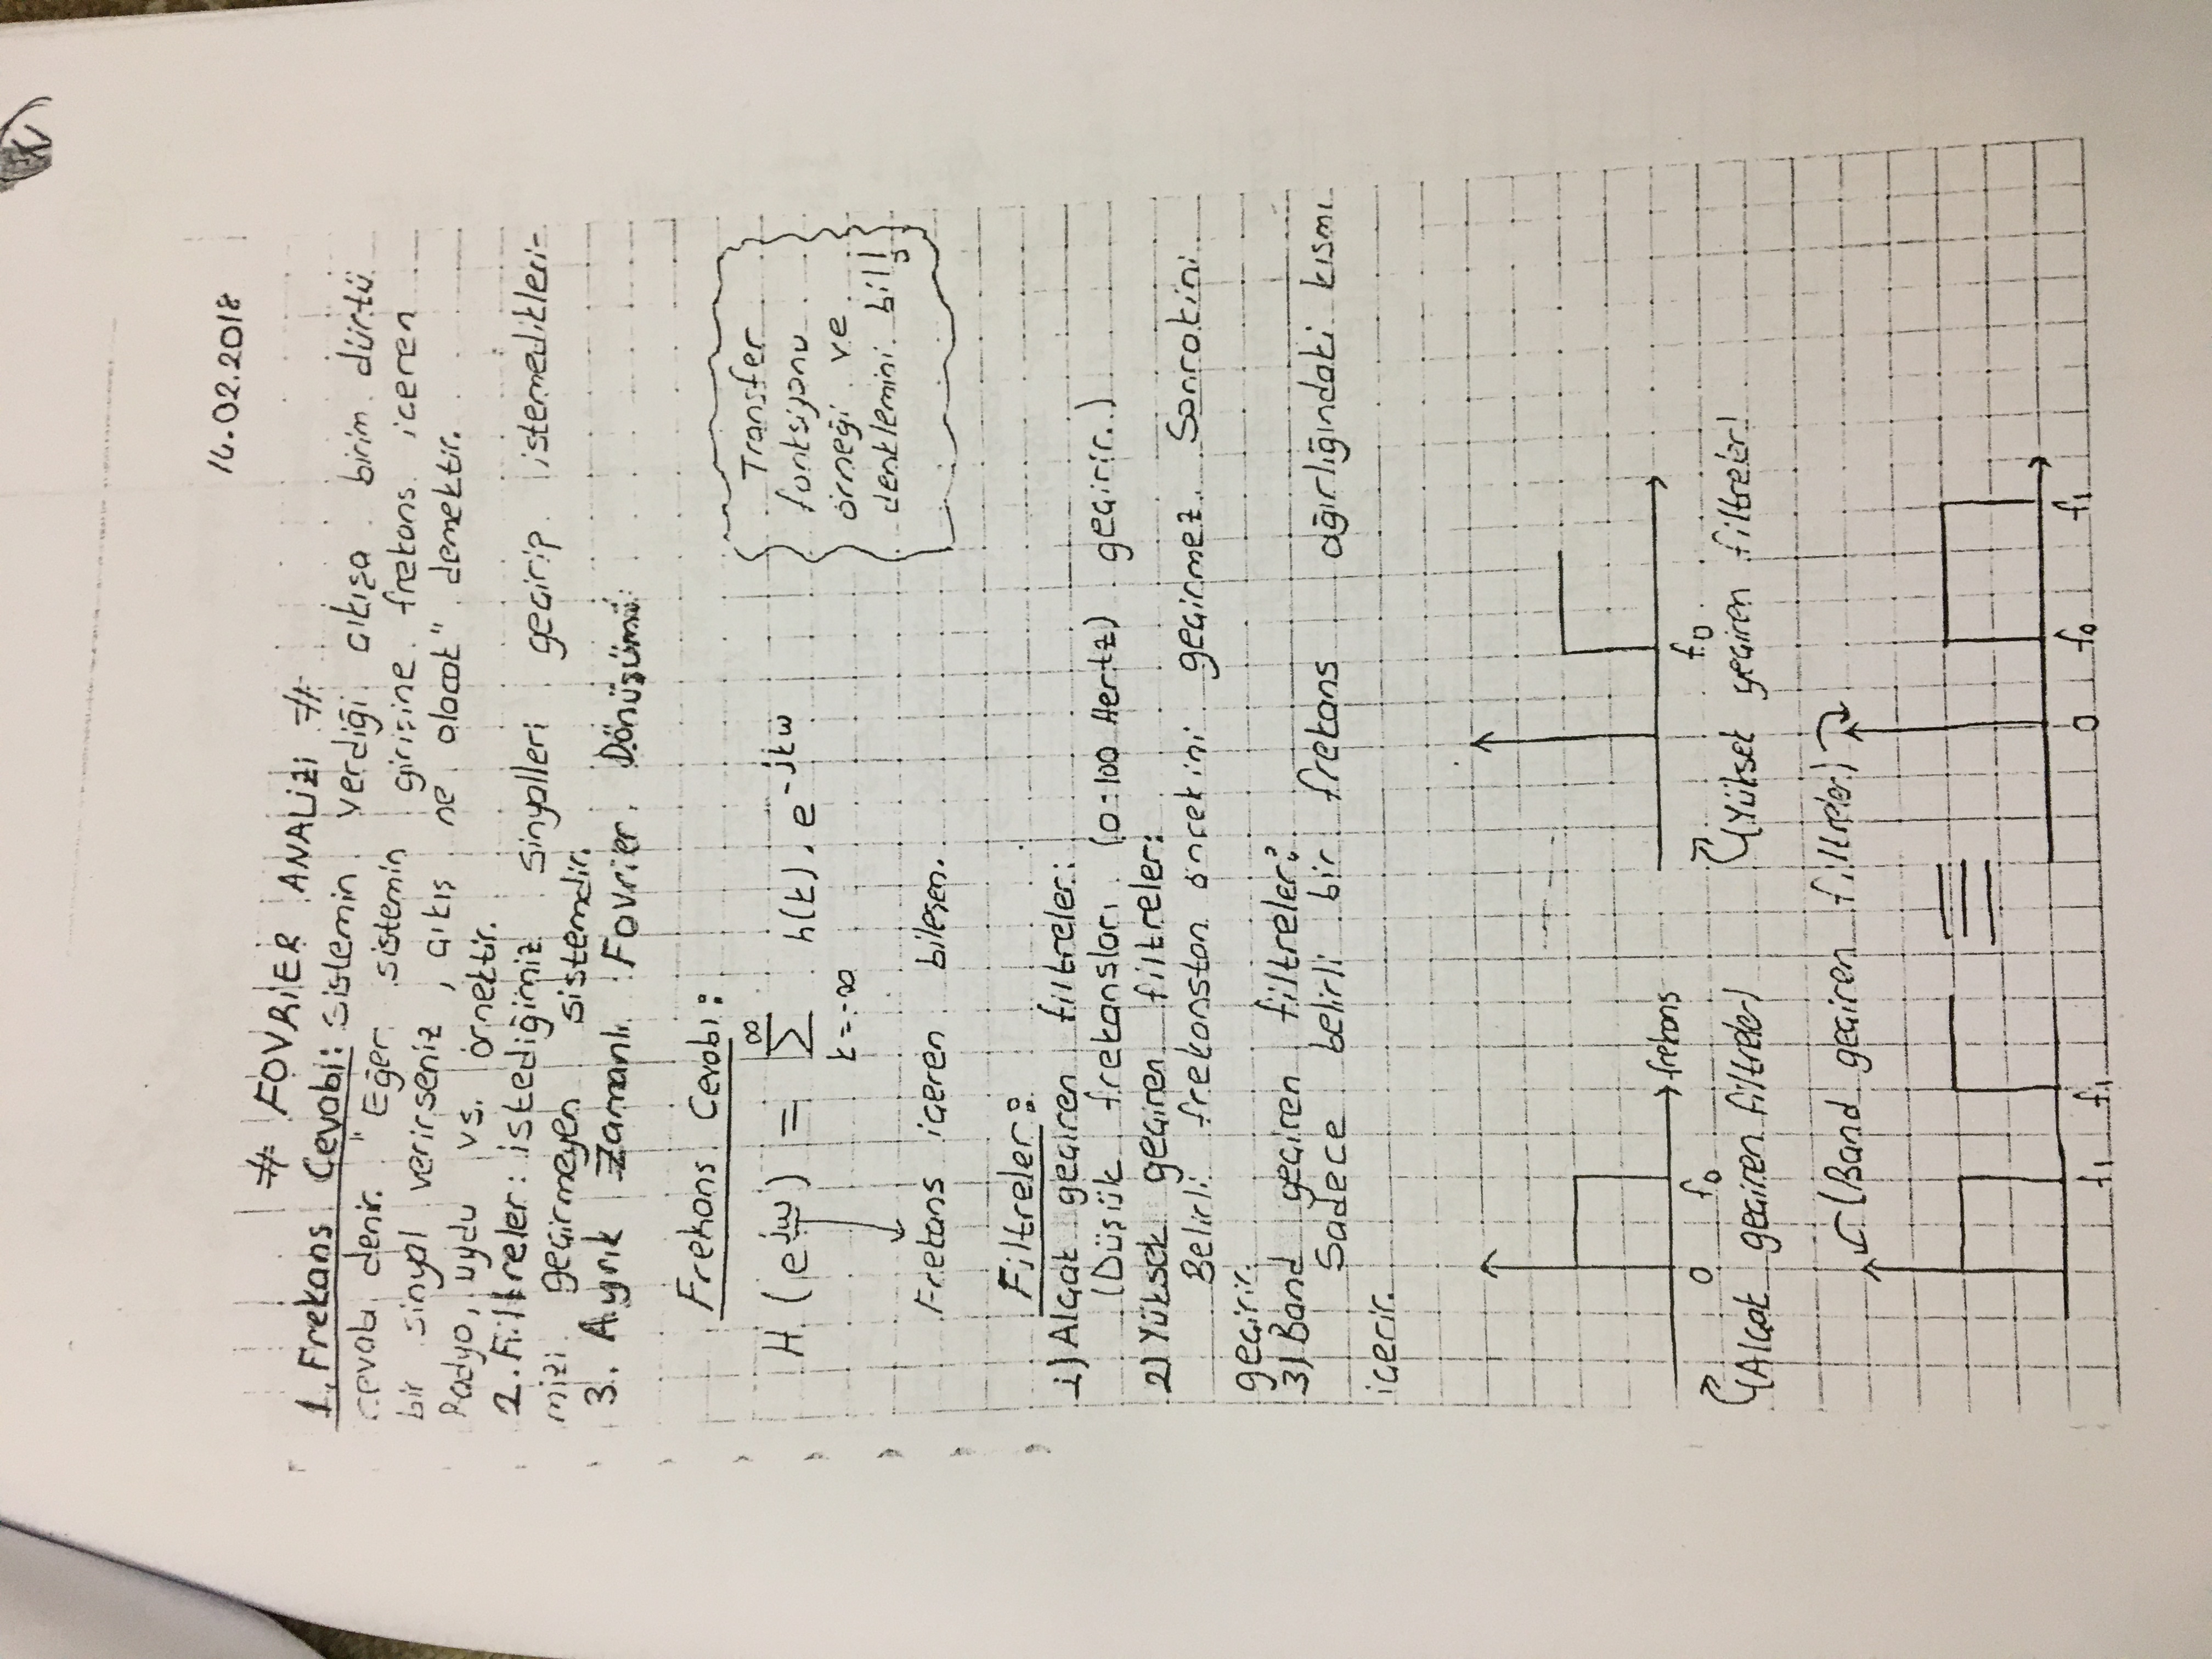 14.02.2018
# FOVRiER ANALizi #
1. Frekans Cevabı: Sistemin verdiği çıkışa birim dürtü
cevabı denir. "Eğer sistemin girişine frekans içeren
bir sinyal verirseniz, çıkış ne olacak" demektir.
Radyo, uydu vs. örnektir.
2. Filtreler: istediğimiz sinyalleri geçirip istemedikleri-
mizi geçirmeyen sistemdir.
3. Ayrık Zamanlı Fovrier Dönüşümü:
Frekans Cevabı:
H (e^jω) = ∞ Σ k=-∞ h(k) . e^-jkω
Frekans içeren bileşen.
Transfer
fonksiyonu
örneği ve
denklemini bil!
Filtreler:
1) Alçak geçiren filtreler:
(Düşük frekansları (0-100 Hertz) geçirir.)
2) Yüksek geçiren filtreler:
Belirli frekanstan öncekini geçirmez. Sonrakini
geçirir.
3) Band geçiren filtreler:
Sadece belirli bir frekans ağırlığındaki kısmı
içerir.
frekans
0 f0
(Alçak geçiren filtreler)
f0
(Yüksek geçiren filtreler)
(Band geçiren filtreler)
f1 f1
≡
0 f0 f1